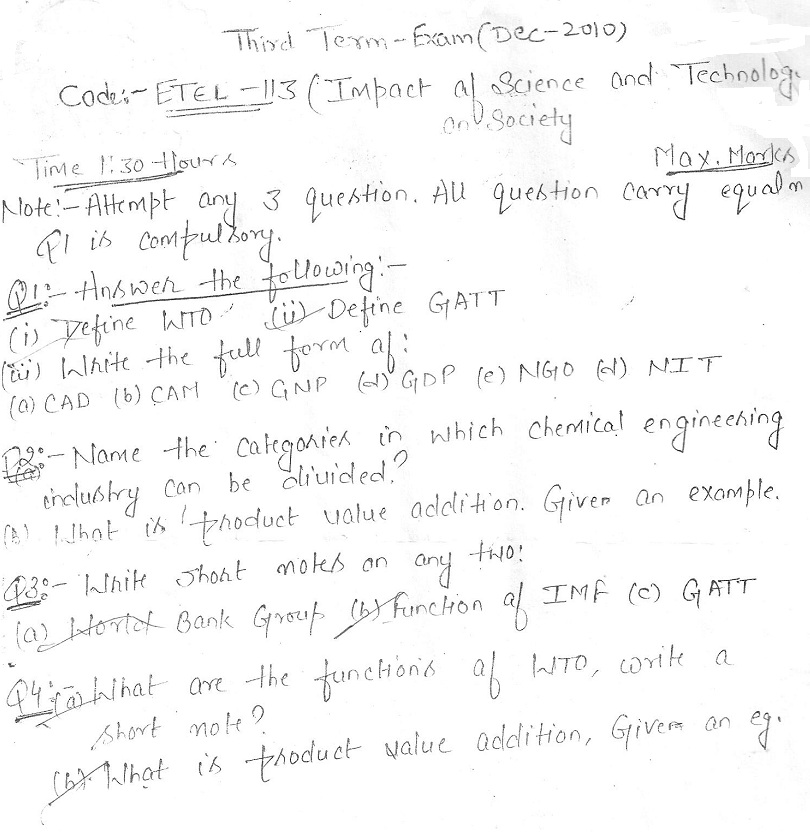 Third Term-Exam (Dec-2010)
Code:- ETEL-113 (Impact of Science and Technolog
on Society
Time 1:30 Hours
Max. Marks
Note:- Attempt any 3 question. All question carry equal m
Q1 is compulsory.
Q1:- Answer the following:-
(i) Define WTO (ii) Define GATT
(iii) Write the full form of:
(a) CAD (b) CAM (c) GNP (d) GDP (e) NGO (d) NIT
Q2:- Name the categories in which chemical engineering
(a)
industry can be divided?
(b) What is product value addition. Given an example.
Q3:- Write short notes on any two:
(a) World Bank Group (b) Function of IMF (c) GATT
Q4:- (a) What are the functions of WTO, write a
short note?
(b) What is product value addition, Given an eg.